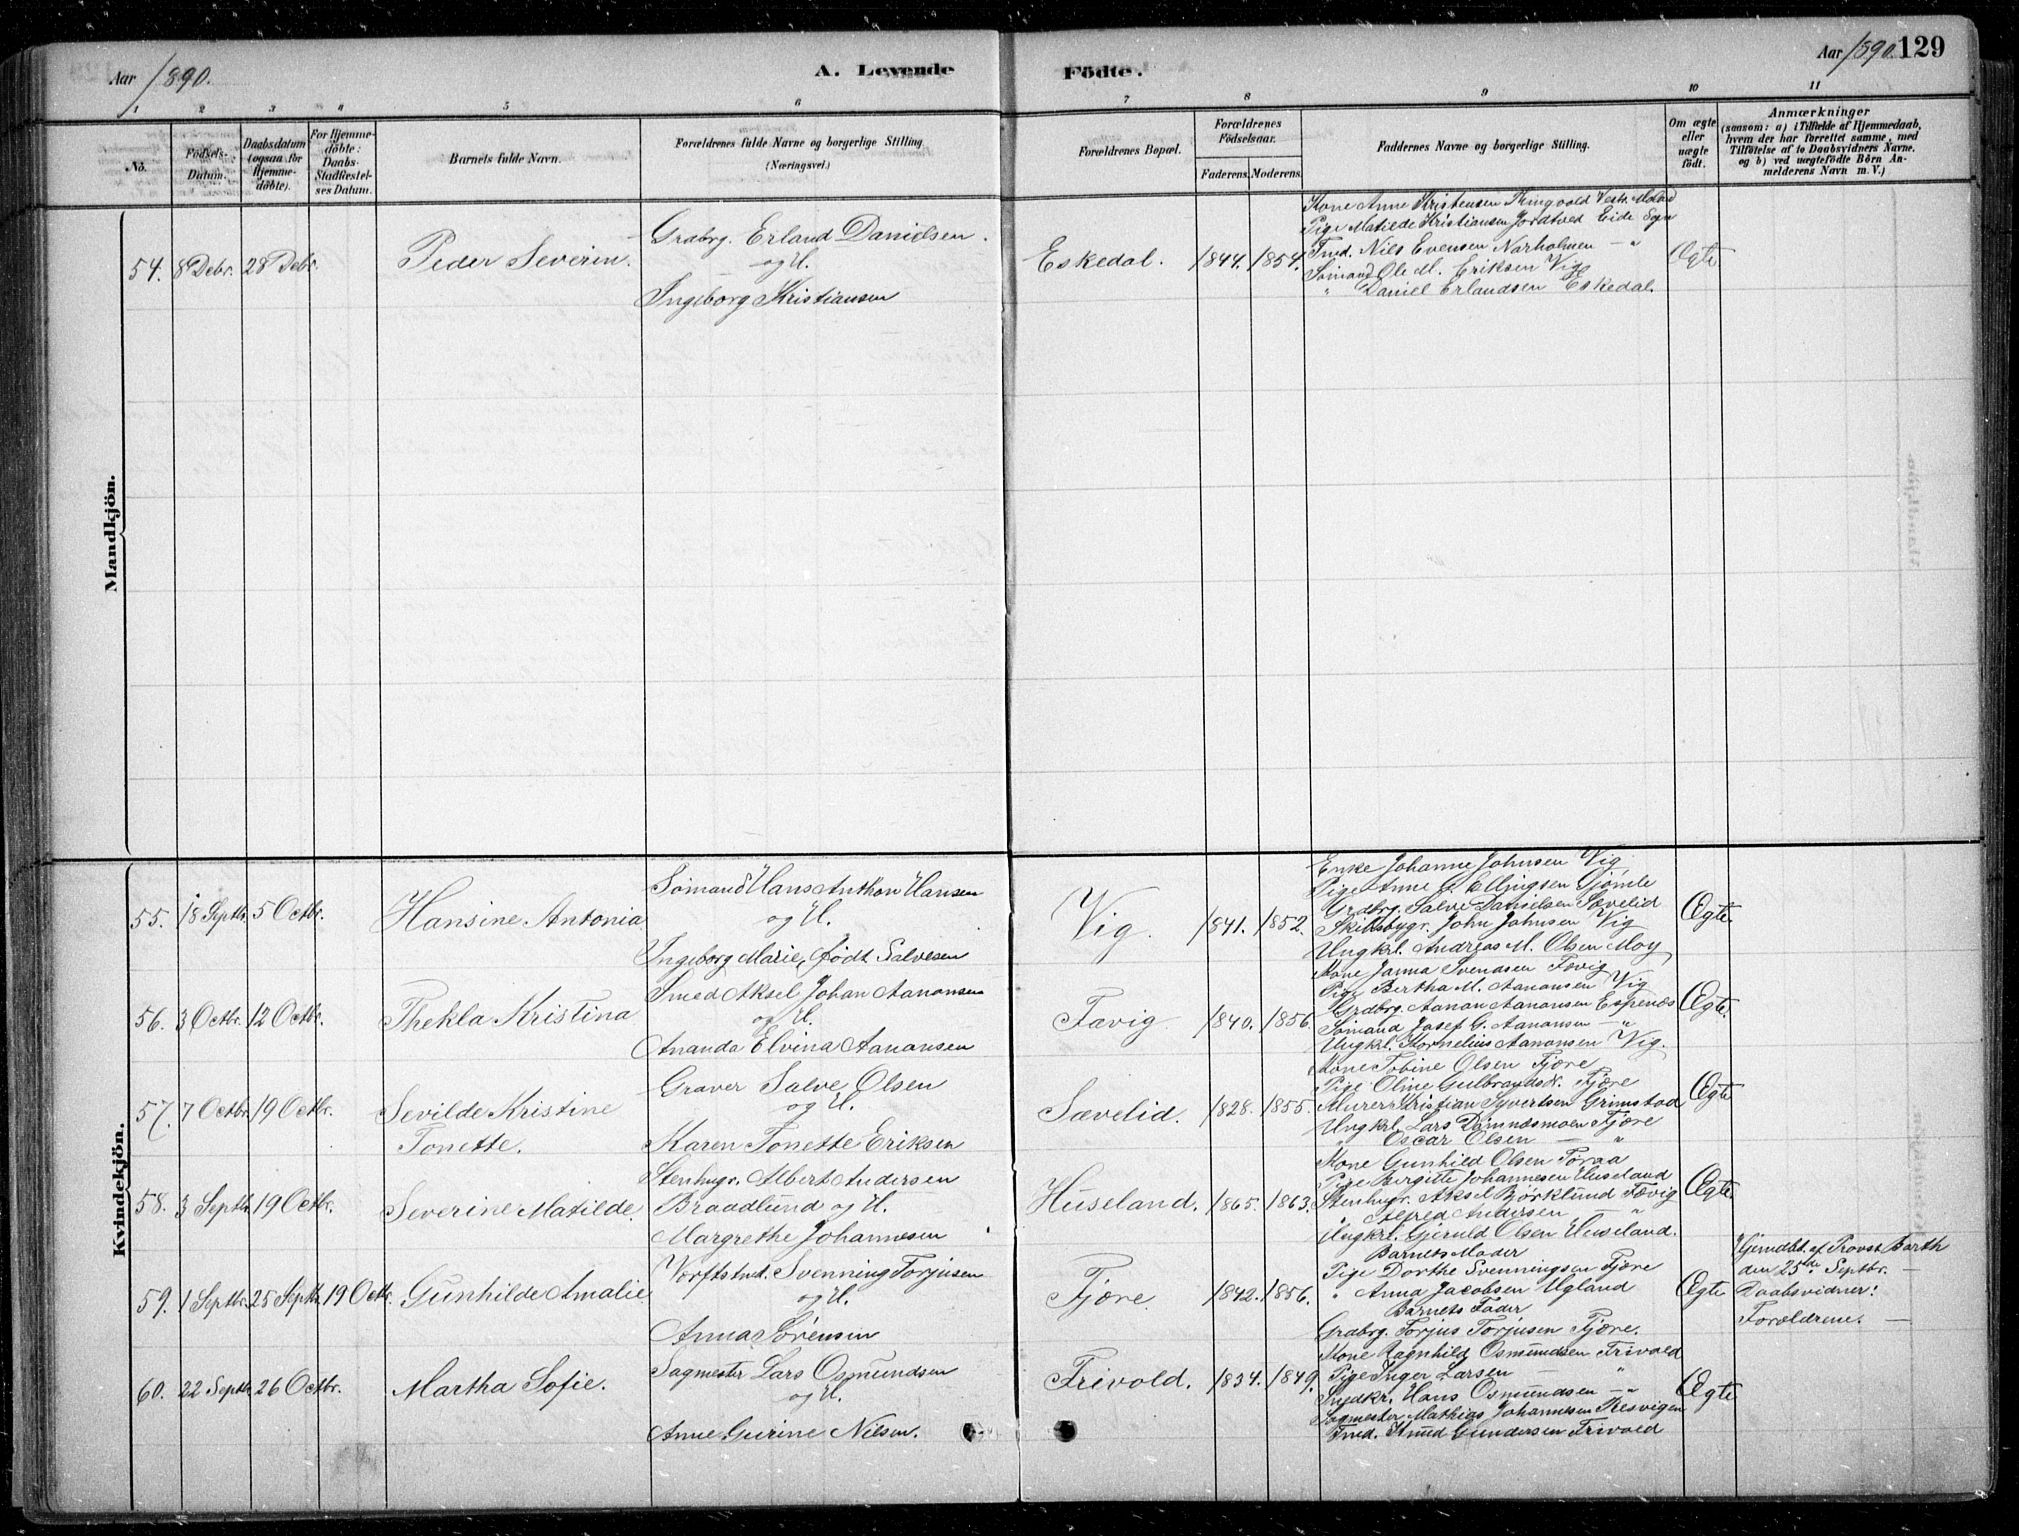 Aar 1890.
A. Levende
Födte.
Aar 1890. 129
1 2 3 4 5 6 7 8 9 10 11
No.
Födsels-
Datum.
Daabsdatum
(ogsaa for
Hjemme-
döbte).
For Hjemme-
döbte:
Daabs-
Stadfæstel-
ses Datum.
Barnets fulde Navn.
Forældrenes fulde Navne og borgerlige Stilling.
(Næringsvei.)
Forældrenes Bopæl.
Forældrenes
Födselsaar.
Faderens. Moderens.
Faddernes Navne og borgerlige Stilling.
Om ægte
eller
uægte
födt.
Anmærkninger
(saasom: a) i Tilfælde af Hjemmedaab,
hvem der har forrettet samme, med
Tilföielse af to Daabsvidners Navne,
og b) ved uægtefödte Börn An-
melderens Navn m. V.)
Mandkjön.
54. 8 Debr. 28 Debr.
Peder Severin.
Grdbrg. Erland Danielsen.
og H.
Ingeborg Kristiansen
Eskedal. 1844. 1854.
Kone Anne Kristensen Ringvold Vestr. Moland
Pige Matilde Kristiansen Eide Sogn
Tmd. Nils Evensen Narholmen — "
Sømand Ole M. Eriksen Vig
" Daniel Erlandsen Eskedal.
Ægte
Kvindekjön.
55. 18 Septbr. 5 Octbr.
Hansine Antonia
Sømand Hans Anthon Hansen
og H.
Ingeborg Marie, født Salvesen
Vig. 1841. 1852.
Enke Johanne Johnsen Vig
Pige Anne E. Ellingsen Gjømle
Grdbrg. Salve Danielsen Sævelid
Skibsbygr. John Johnsen Vig
Ungkrl. Andreas M. Olsen Moy
Ægte
56. 3 Octbr. 12 Octbr.
Thekla Kristina
Smed Aksel Johan Aanonsen
og H.
Ananda Elvina Aanonsen
Favig 1840. 1856.
Kone Janna Svendsen Fævig
Pige Bertha M. Aanonsen Vig
Grdbrg. Aanon Aanonsen Espenæs
Sømand Josef G. Aanonsen — "
Ungkrl. Kornelius Aanonsen Vig.
Ægte.
57. 7 Octbr. 19 Octbr.
Sevilde Kristine
Tonette.
Graver Salve Olsen
og H.
Karen Tonette Eriksen
Sævelid. 1828. 1855.
Kone Tobine Olsen Fjære
Pige Oline Gulbrands. Fjære
Murer Kristian Syvertsen Grimstad
Ungkrl. Lars Dømnesmoen Fjære
" Oscar Olsen — "
Ægte
58. 3 Septbr. 19 Octbr.
Severine Matilde.
Stenhugr. Albert Andersen
Braadlund og H.
Margrethe Johannesen
Huseland. 1865. 1863.
Kone Gunhild Olsen Toraa
Pige Birgitte Johannesen Huseland
Stenhugr. Aksel Bjørklund Fævig
" Alfred Andersen — "
Ungkrl. Gjeruld Olsen Huseland.
Ægte
59. 1 Septbr. 25 Septbr. 19 Octbr.
Gunhilde Amalie
Værftstmd. Svenning Torjusen
og H.
Anna Sørensen
Fjære. 1842. 1856.
Barnets Moder
Pige Dorthe Svenningsen Fjære
" Anna Jacobsen Ugland
Barnets Fader
Grdbrg. Torjus Torjusen Fjære.
Ægte
Hjemdbt. af Provst Barth
den 25de Septbr. —
Daabsvidner:
Forældrene. —
60. 22 Septbr. 26 Octbr.
Martha Sofie.
Sagmester Lars Osmundsen
og H.
Anne Gurine Nilsen.
Frivold. 1834. 1849.
Kone Ragnhild Osmundsen Frivold
Pige Inger Larsen "
Snedkr. Hans Osmundsen — "
Sagmester Mathias Johannesen Resvigen
Tmd. Knud Gundersen Frivold
Ægte